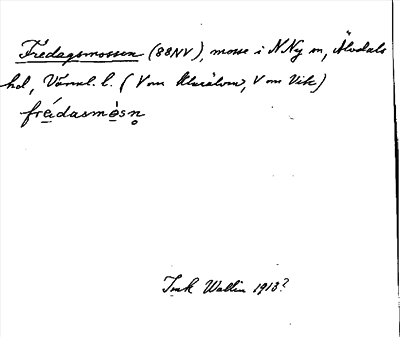 Fredagsmossen (88NV), mosse i N Ny sn, Älvdals
hd, Värml. l. (V om Klarälven, V om Vik)
frédasmòsn̥
Ink Wallin 1913?